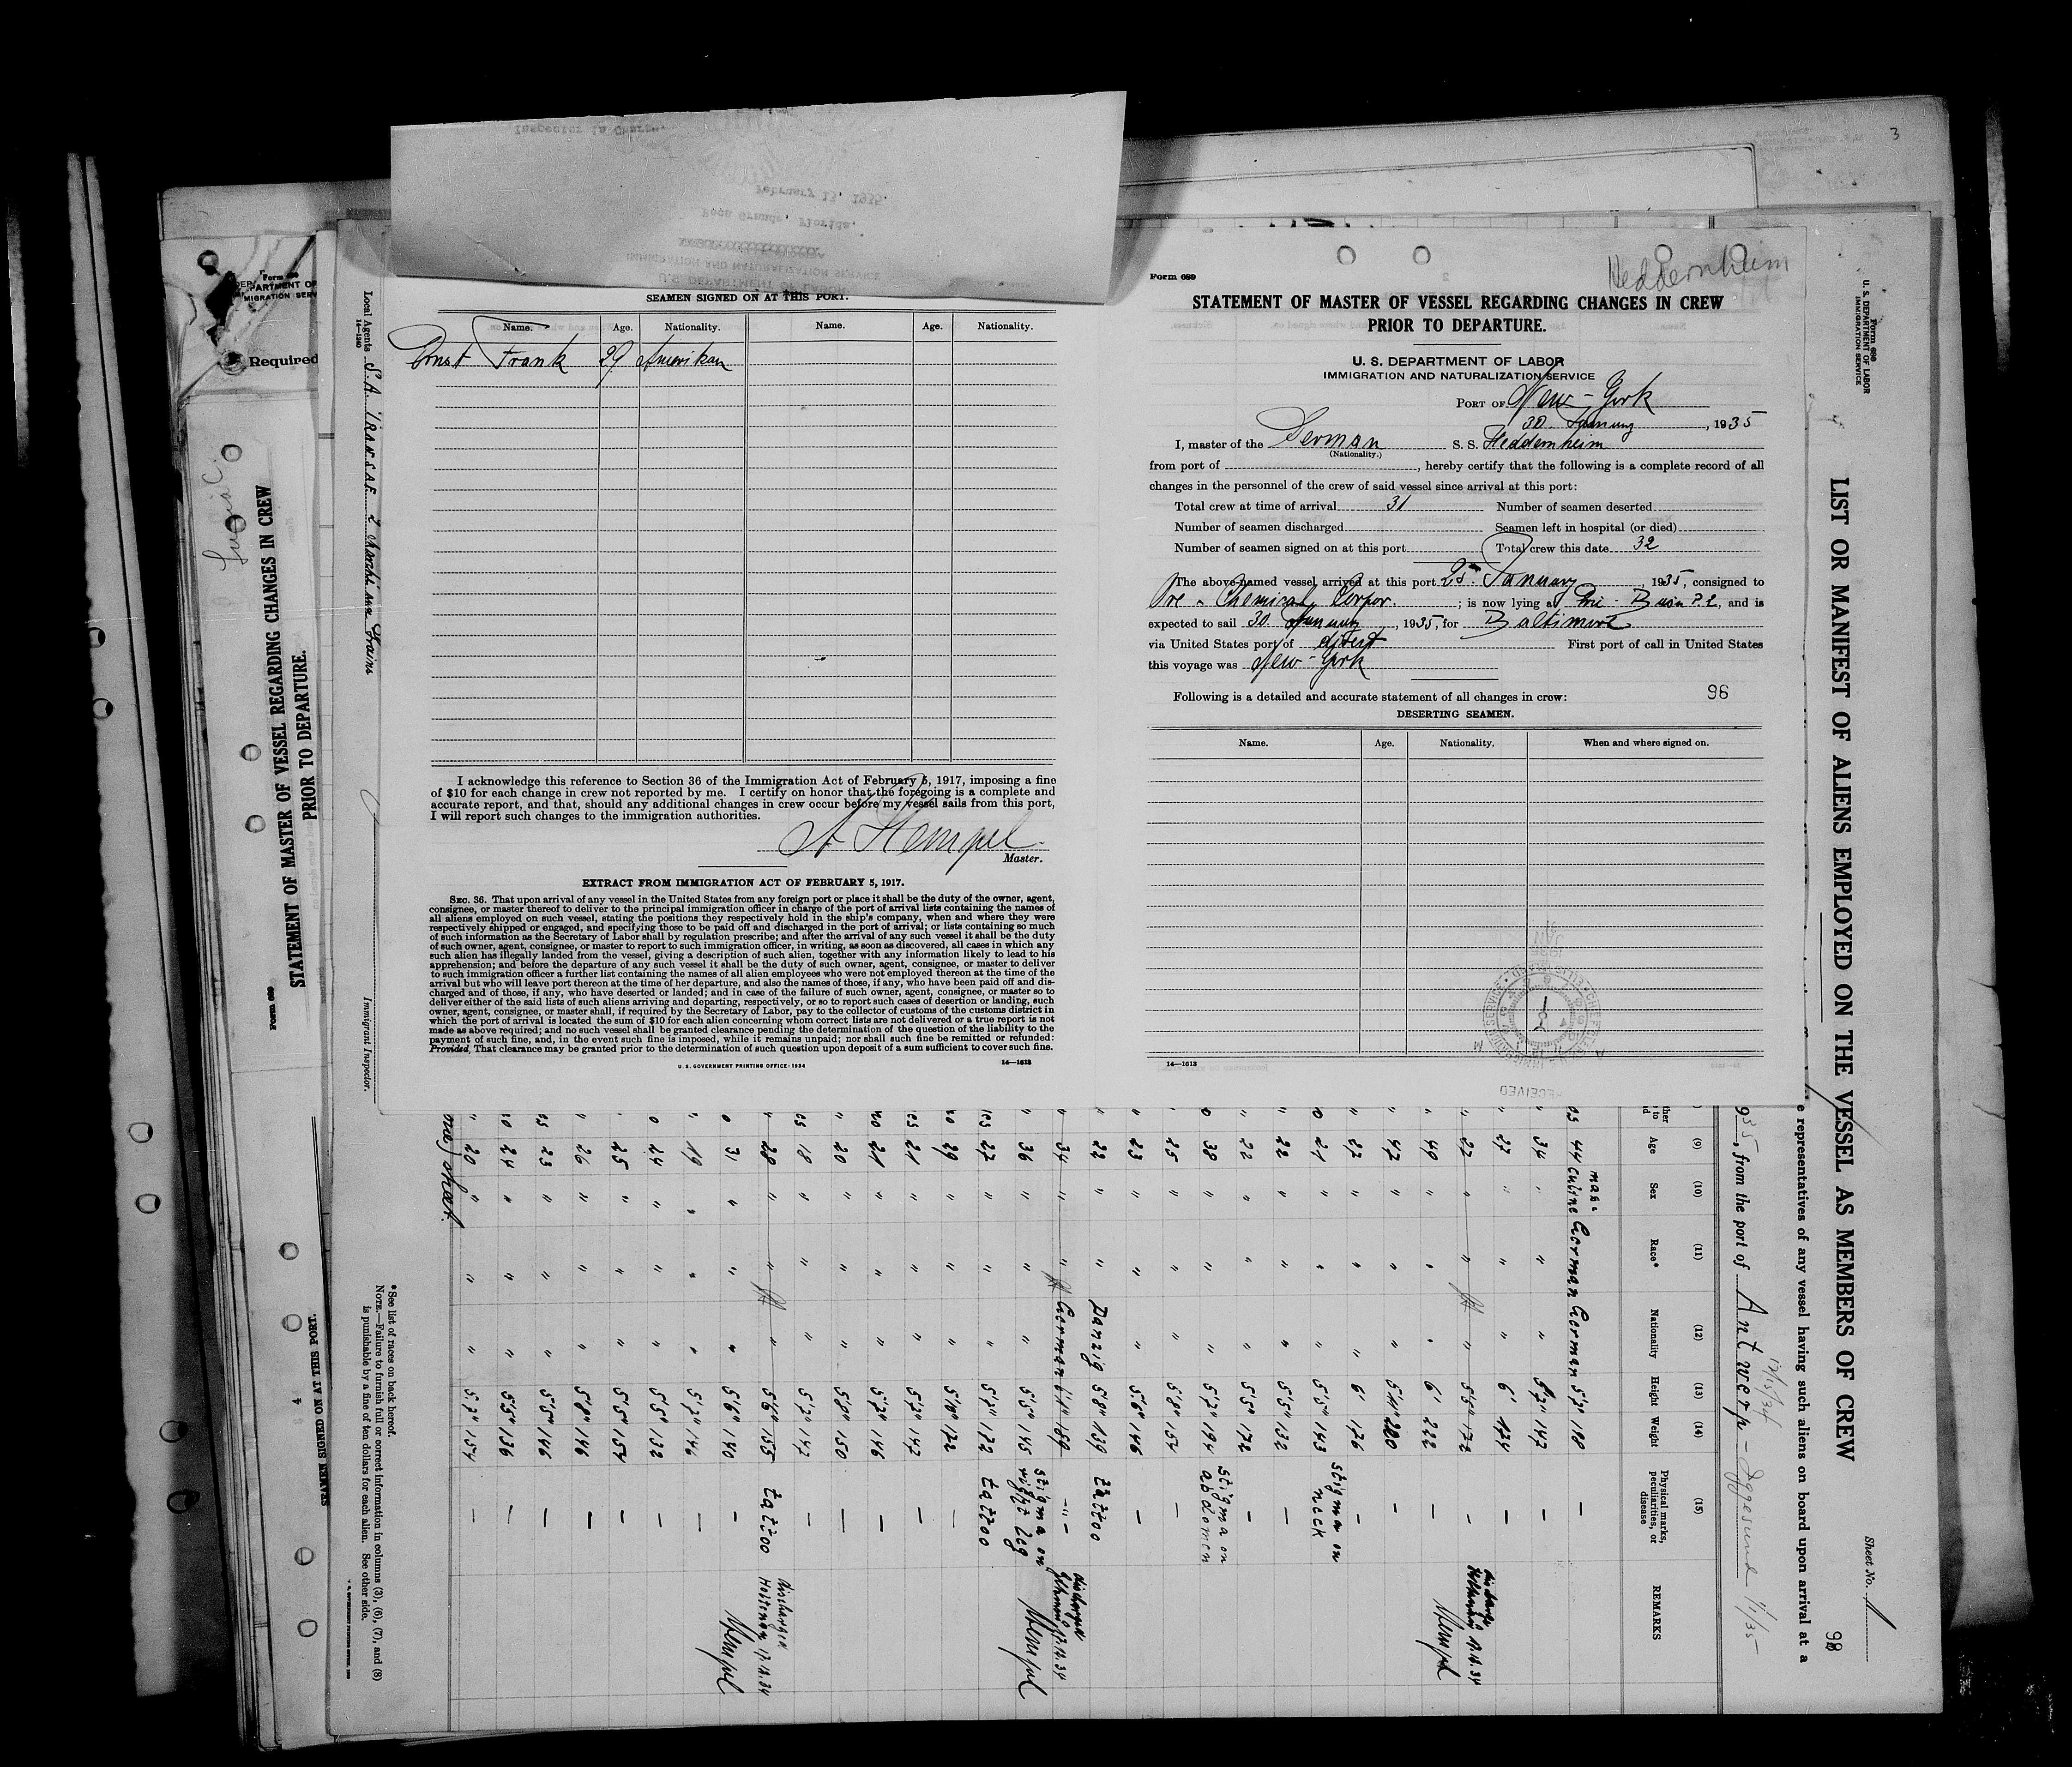 3
Inspector in Charge.
February 13, 1935.
Boca Grande, Florida.
IMMIGRATION AND NATURALIZATION SERVICE
U. S. DEPARTMENT OF LABOR
SEAMEN SIGNED ON AT THIS PORT.
Name. Age. Nationality. Name. Age. Nationality.
Ernst Frank 29 Amerikan
I acknowledge this reference to Section 36 of the Immigration Act of February 5, 1917, imposing a fine
of $10 for each change in crew not reported by me. I certify on honor that the foregoing is a complete and
accurate report, and that, should any additional changes in crew occur before my vessel sails from this port,
I will report such changes to the immigration authorities.
A Hempel
Master.
EXTRACT FROM IMMIGRATION ACT OF FEBRUARY 5, 1917.
SEC. 36. That upon arrival of any vessel in the United States from any foreign port or place it shall be the duty of the owner, agent,
consignee, or master thereof to deliver to the principal immigration officer in charge of the port of arrival lists containing the names of
all aliens employed on such vessel, stating the positions they respectively hold in the ship's company, when and where they were
respectively shipped or engaged, and specifying those to be paid off and discharged in the port of arrival; or lists containing so much
of such information as the Secretary of Labor shall by regulation prescribe; and after the arrival of any such vessel it shall be the duty
of such owner, agent, consignee, or master to report to such immigration officer, in writing, as soon as discovered, all cases in which any
such alien has illegally landed from the vessel, giving a description of such alien, together with any information likely to lead to his
apprehension; and before the departure of any such vessel it shall be the duty of such owner, agent, consignee, or master to deliver
to such immigration officer a further list containing the names of all alien employees who were not employed thereon at the time of the
arrival but who will leave port thereon at the time of her departure, and also the names of those, if any, who have been paid off and dis-
charged and of those, if any, who have deserted or landed; and in case of the failure of such owner, agent, consignee, or master so to
deliver either of the said lists of such aliens arriving and departing, respectively, or so to report such cases of desertion or landing, such
owner, agent, consignee, or master shall, if required by the Secretary of Labor, pay to the collector of customs of the customs district in
which the port of arrival is located the sum of $10 for each alien concerning whom correct lists are not delivered or a true report is not
made as above required; and no such vessel shall be granted clearance pending the determination of the question of the liability to the
payment of such fine, and, in the event such fine is imposed, while it remains unpaid; nor shall such fine be remitted or refunded:
Provided, That clearance may be granted prior to the determination of such question upon deposit of a sum sufficient to cover such fine.
U. S. GOVERNMENT PRINTING OFFICE: 1934 14—1613
Form 689
Heddernheim
STATEMENT OF MASTER OF VESSEL REGARDING CHANGES IN CREW
PRIOR TO DEPARTURE.
U. S. DEPARTMENT OF LABOR
IMMIGRATION AND NATURALIZATION SERVICE
PORT OF New-York
30 January, 1935
I, master of the German S. S. Heddernheim
(Nationality.)
from port of , hereby certify that the following is a complete record of all
changes in the personnel of the crew of said vessel since arrival at this port:
Total crew at time of arrival 31 Number of seamen deserted
Number of seamen discharged Seamen left in hospital (or died)
Number of seamen signed on at this port Total crew this date 32
The above-named vessel arrived at this port 25. January, 1935, consigned to
Ore - Chemical Corpor. ; is now lying at Erie - Basin P. 2, and is
expected to sail 30 January, 1935, for Baltimore
via United States port of direct First port of call in United States
this voyage was New-York
Following is a detailed and accurate statement of all changes in crew: 96
DESERTING SEAMEN.
Name. Age. Nationality. When and where signed on.
14—1613
RECEIVED
Form 689
DEPARTMENT OF
IMMIGRATION SERV
Required
Form 689
STATEMENT OF MASTER OF VESSEL REGARDING CHANGES IN CREW
PRIOR TO DEPARTURE.
SEAMEN SIGNED ON AT THIS PORT.
4
Local Agents
14—1240
Immigrant Inspector.
Form 680
U. S. DEPARTMENT OF LABOR
IMMIGRATION SERVICE
Sheet No. 1
98
LIST OR MANIFEST OF ALIENS EMPLOYED ON THE VESSEL AS MEMBERS OF CREW
e representatives of any vessel having such aliens on board upon arrival at a
935, from the port of Antwerp - Iggesund 1/1/35
12/15/34
(9) (10) (11) (12) (13) (14) (15)
Age Sex Race* Nationality Height Weight Physical marks, peculiarities, or disease REMARKS
44 masculine German German 5'7" 180 —
34 " " " 5'7" 147 —
27 " " " 6' 174 —
27 " " " 5'5" 172 — discharged 17.12.34 Hempel
49 " " " 6' 222 —
47 " " " 5'11" 200 —
27 " " " 6' 176 —
21 " " " 5'5" 143 stigma on neck
22 " " " 5'5" 132 —
22 " " " 5'5" 172 —
38 " " " 5'7" 194 stigma on abdomen
25 " " " 5'8" 154 —
23 " " " 5'6" 146 —
22 " " Danzig 5'8" 139 tattoo
34 " " German 6'1" 189 -"- discharged 17.12.34 Hempel
36 " " " 5'5" 145 stigma on right leg
27 " " " 5'7" 132 tattoo
29 " " " 5'10" 172 —
21 " " " 5'7" 142 —
21 " " " 5'7" 146 —
20 " " " 5'8" 150 —
18 " " " 5'7" 147 —
28 " " " 5'6" 155 tattoo discharged Holtenau 17.12.34 Hempel
31 " " " 5'6" 140 —
19 " " " 5'7" 146 —
24 " " " 5'5" 132 —
25 " " " 5'5" 154 —
26 " " " 5'8" 146 —
23 " " " 5'5" 146 —
24 " " " 5'5" 136 —
20 " " " 5'7" 154 —
sheet.
*See list of races on back hereof.
NOTE.—Failure to furnish full or correct information in columns (3), (6), (7), and (8)
is punishable by a fine of ten dollars for each alien. See other side.